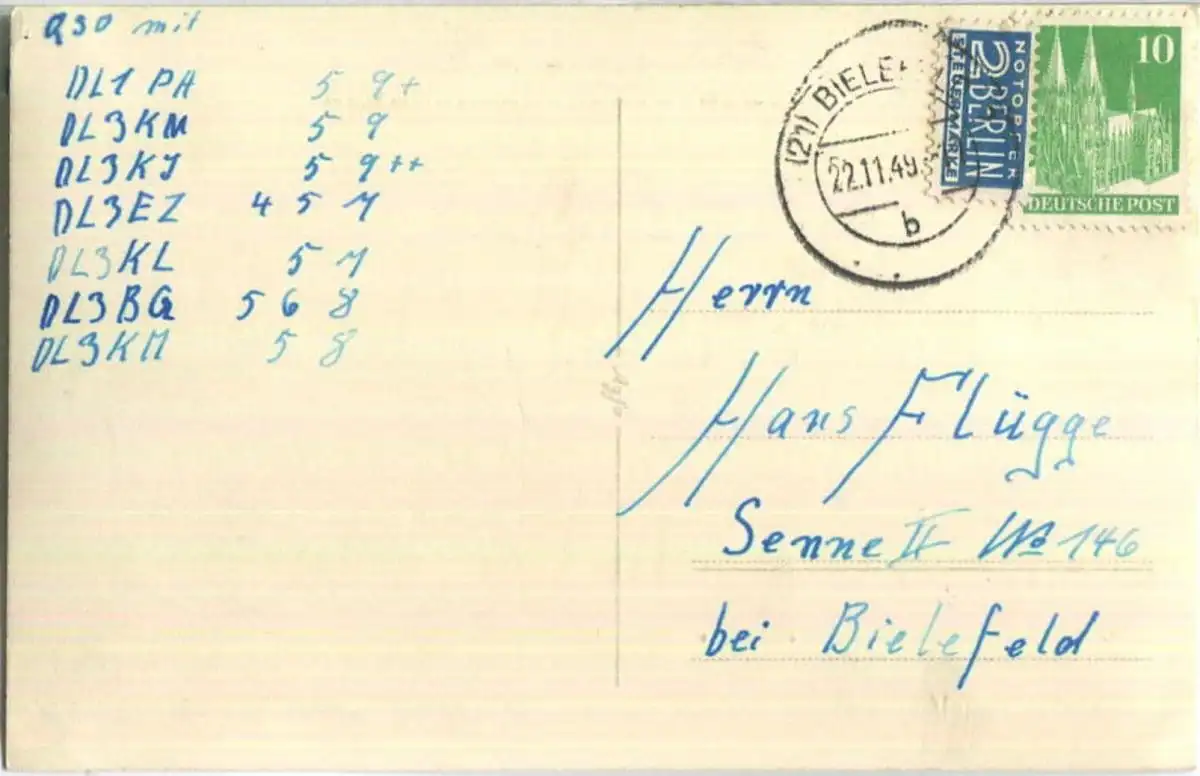 QSO mit
DL1PA 5 9+
DL3KM 5 9
DL3KJ 5 9++
DL3EZ 4 5 7
DL3KL 5 7
DL3BQ 5 6 8
DL3KM 5 8
(21) BIELEF
22.11.49
b
NOTOPFER
2 BERLIN
STEUERMARKE
10
DEUTSCHE POST
Herrn
Hans Flügge
Senne II No 146
bei Bielefeld